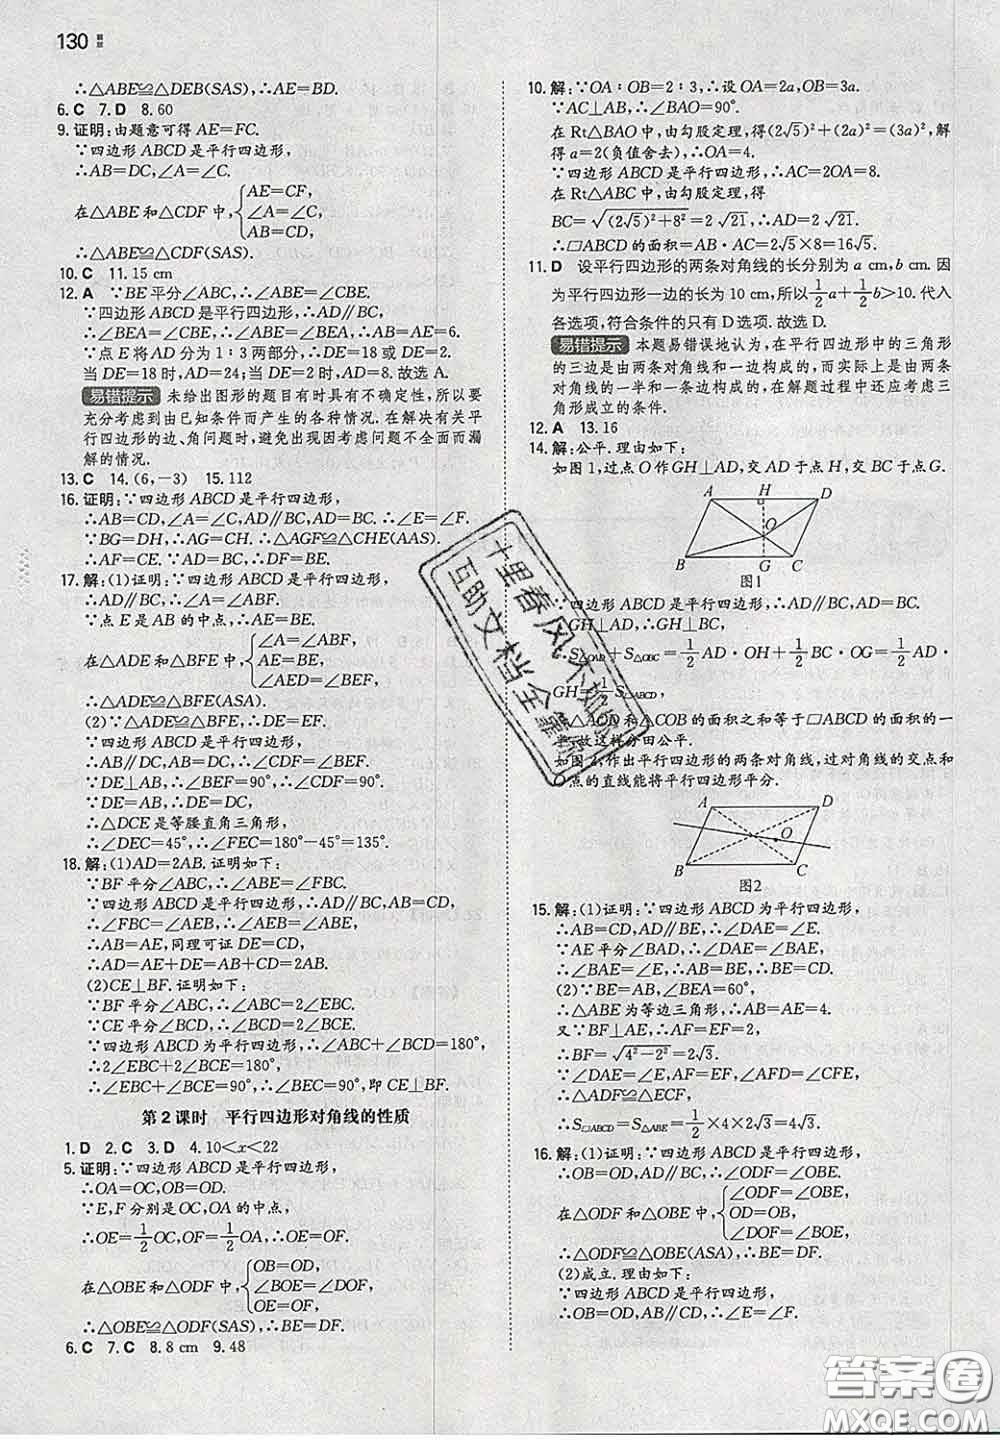 130
∴△ABE≌△DEB(SAS),∴AE=BD.
6.C 7.D 8.60
9.证明:由题意可得 AE=FC.
∵四边形 ABCD 是平行四边形,
∴AB=DC,∠A=∠C.
在△ABE 和△CDF 中,{AE=CF,
∠A=∠C,
AB=CD,
∴△ABE≌△CDF(SAS).
10.C 11.15 cm
12.A ∵BE 平分∠ABC,∴∠ABE=∠CBE.
∵四边形 ABCD 是平行四边形,∴AD∥BC,
∴∠BEA=∠CBE,∴∠ABE=∠BEA,∴AB=AE=6.
∵点 E 将 AD 分为 1∶3 两部分,∴DE=18 或 DE=2.
当 DE=18 时,AD=24;当 DE=2 时,AD=8.故选 A.
易错提示 未给出图形的题目有时具有不确定性,所以要
充分考虑到由已知条件而产生的各种情况.在解决有关平
行四边形的边、角问题时,避免出现因考虑问题不全面而漏
解的情况.
13.C 14.(6,-3) 15.112
16.证明:∵四边形 ABCD 是平行四边形,
∴AB=CD,∠A=∠C,AD∥BC,AD=BC,∴∠E=∠F.
∵BG=DH,∴AG=CH.∴△AGF≌△CHE(AAS).
∴AF=CE.∵AD=BC,∴DF=BE.
17.解:(1)证明:∵四边形 ABCD 是平行四边形,
∴AD∥BC,∴∠A=∠ABF.
∵点 E 是 AB 的中点,∴AE=BE.
在△ADE 和△BFE 中,{∠A=∠ABF,
AE=BE,
∠AED=∠BEF,
∴△ADE≌△BFE(ASA).
(2)∵△ADE≌△BFE,∴DE=EF.
∵四边形 ABCD 是平行四边形,
∴AB∥DC,AB=DC,∴∠CDF=∠BEF.
∵DE⊥AB,∴∠BEF=90°,∴∠CDF=90°.
∵DE=AB,∴DE=DC,
∴△DCE 是等腰直角三角形,
∴∠DEC=45°,∴∠FEC=180°-45°=135°.
18.解:(1)AD=2AB.证明如下:
∵BF 平分∠ABC,∴∠ABE=∠FBC.
∵四边形 ABCD 是平行四边形,∴AD∥BC,
∴∠FBC=∠AEB,∴∠ABE=∠AEB,
∴AB=AE,同理可证 DE=CD,
∴AD=AE+DE=AB+CD=2AB.
(2)CE⊥BF.证明如下:
∵BF 平分∠ABC,∴∠ABC=2∠EBC.
∵CE 平分∠BCD,∴∠BCD=2∠BCE.
∵四边形 ABCD 为平行四边形,∴∠ABC+∠BCD=180°,
∴2∠EBC+2∠BCE=180°,
∴∠EBC+∠BCE=90°,∴∠BEC=90°,即 CE⊥BF.
第 2 课时 平行四边形对角线的性质
1.D 2.C 3.D 4.10<x<22
5.证明:∵四边形 ABCD 是平行四边形,
∴OA=OC,OB=OD.
∵E,F 分别是 OC,OA 的中点,
∴OE=1/2 OC,OF=1/2 OA,∴OE=OF.
在△OBE 和△ODF 中,{OB=OD,
∠BOE=∠DOF,
OE=OF,
∴△OBE≌△ODF(SAS),∴BE=DF.
6.C 7.C 8.8 cm 9.48
10.解:∵OA∶OB=2∶3,∴设 OA=2a,OB=3a.
∵AC⊥AB,∴∠BAO=90°.
在 Rt△BAO 中,由勾股定理,得(2√5)²+(2a)²=(3a)²,解
得 a=2(负值舍去),∴OA=4.
∵四边形 ABCD 是平行四边形,∴AC=2OA=8.
在 Rt△ABC 中,由勾股定理,得
BC=√((2√5)²+8²)=2√21,∴AD=2√21.
∴□ABCD 的面积=AB·AC=2√5×8=16√5.
11.D 设平行四边形的两条对角线的长分别为 a cm,b cm.因
为平行四边形一边的长为 10 cm,所以 1/2 a+1/2 b>10.代入
各选项,符合条件的只有 D 选项.故选 D.
易错提示 本题易错误地认为,在平行四边形中的三角形
的三边是由两条对角线和一边构成的,而实际上是由两条
对角线的一半和一边构成的,在解题过程中还应考虑三
角形成立的条件.
12.A 13.16
14.解:公平.理由如下:
如图 1,过点 O 作 GH⊥AD,交 AD 于点 H,交 BC 于点 G.
A H D
O
B G C
图1
∵四边形 ABCD 是平行四边形,∴AD∥BC,AD=BC.
∵GH⊥AD,∴GH⊥BC,
∴S△OAD+S△OBC=1/2 AD·OH+1/2 BC·OG=1/2 AD·
GH=1/2 S□ABCD,
即△AOD 和△COB 的面积之和等于□ABCD 的面积的一
半,故这样分田公平.
如图 2,作出平行四边形的两条对角线,过对角线的交点和
O 点的直线能将平行四边形平分.
A D
O
B C
图2
15.解:(1)证明:∵四边形 ABCD 为平行四边形,
∴AB=CD,AD∥BE,∴∠DAE=∠E.
∵AE 平分∠BAD,∴∠DAE=∠BAE,
∴∠BAE=∠E,∴AB=BE,∴BE=CD.
(2)∵BE=AB,∠BEA=60°,
∴△ABE 为等边三角形,∴AB=AE=4.
又∵BF⊥AE,∴AF=EF=2,
∴BF=√(4²-2²)=2√3.
∵∠D=∠ECF,∠DAF=∠E,AF=EF,
∴△ADF≌△ECF,
∴S□ABCD=S△ABE=1/2×4×2√3=4√3.
16.解:(1)证明:∵四边形 ABCD 是平行四边形,
∴OB=OD,AD∥BC,∴∠ODF=∠OBE.
在△ODF 和△OBE 中,{∠ODF=∠OBE,
OD=OB,
∠DOF=∠BOE,
∴△ODF≌△OBE(ASA),∴BE=DF.
(2)成立.理由如下:
∵四边形 ABCD 是平行四边形,
∴OB=OD,AB∥CD,∴∠E=∠F.
十里春风不如你
互助文档全靠你
答案圈
MXQE.COM